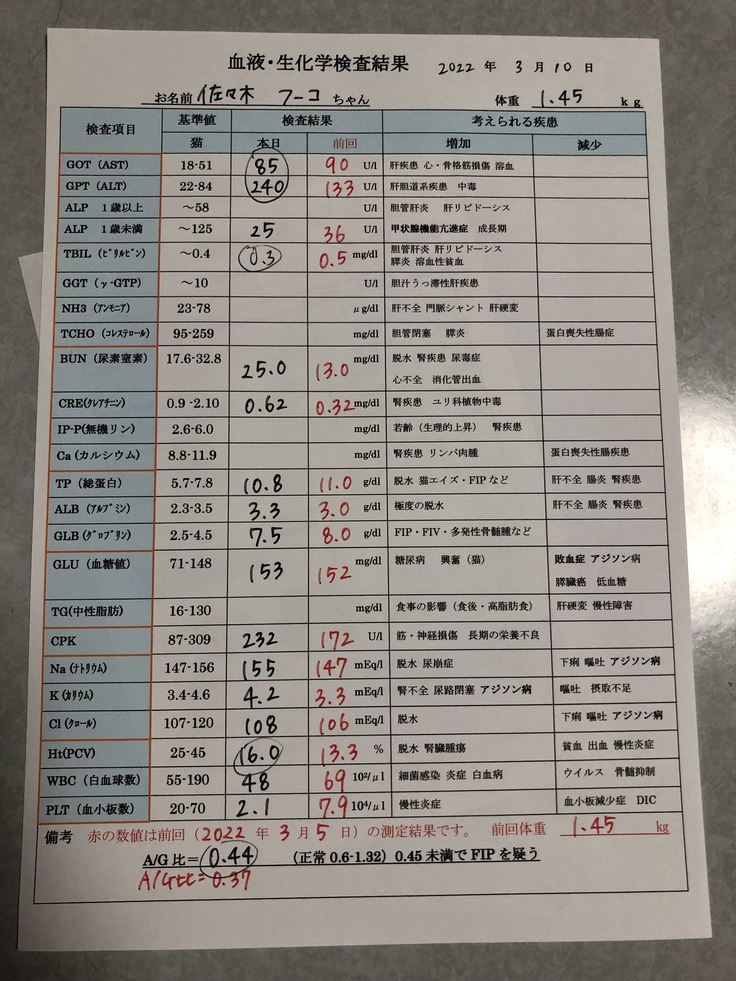 血液・生化学検査結果 2022 年 3 月 10 日
お名前 佐々木 フーコ ちゃん 体重 1.45 kg
検査項目 基準値 検査結果 考えられる疾患
猫 本日 前回 増加 減少
GOT (AST) 18-51 85 90 U/l 肝疾患 心・骨格筋損傷 溶血
GPT (ALT) 22-84 240 133 U/l 肝胆道系疾患 中毒
ALP 1歳以上 ～58 U/l 胆管肝炎 肝リピドーシス
ALP 1歳未満 ～125 25 36 U/l 甲状腺機能亢進症 成長期
TBIL (ビリルビン) ～0.4 0.3 0.5 mg/dl 胆管肝炎 肝リピドーシス
膵炎 溶血性貧血
GGT (γ-GTP) ～10 U/l 胆汁うっ滞性肝疾患
NH3 (アンモニア) 23-78 μg/dl 肝不全 門脈シャント 肝硬変
TCHO (コレステロール) 95-259 mg/dl 胆管閉塞 膵炎 蛋白喪失性腸症
BUN (尿素窒素) 17.6-32.8 25.0 13.0 mg/dl 脱水 腎疾患 尿毒症
心不全 消化管出血
CRE(クレアチニン) 0.9 -2.10 0.62 0.32 mg/dl 腎疾患 ユリ科植物中毒
IP-P(無機リン) 2.6-6.0 mg/dl 若齢（生理的上昇） 腎疾患
Ca (カルシウム) 8.8-11.9 mg/dl 腎疾患 リンパ肉腫 蛋白喪失性腸疾患
TP (総蛋白) 5.7-7.8 10.8 11.0 g/dl 脱水 猫エイズ・FIP など 肝不全 腸炎 腎疾患
ALB (アルブミン) 2.3-3.5 3.3 3.0 g/dl 極度の脱水 肝不全 腸炎 腎疾患
GLB (グロブリン) 2.5-4.5 7.5 8.0 g/dl FIP・FIV・多発性骨髄腫など
GLU (血糖値) 71-148 153 152 mg/dl 糖尿病 興奮（猫） 敗血症 アジソン病
膵臓癌 低血糖
TG(中性脂肪) 16-130 mg/dl 食事の影響（食後・高脂肪食） 肝硬変 慢性障害
CPK 87-309 232 172 U/l 筋・神経損傷 長期の栄養不良
Na (ナトリウム) 147-156 155 147 mEq/l 脱水 尿崩症 下痢 嘔吐 アジソン病
K (カリウム) 3.4-4.6 4.2 3.3 mEq/l 腎不全 尿路閉塞 アジソン病 嘔吐 摂取不足
Cl (クロール) 107-120 108 106 mEq/l 脱水 下痢 嘔吐 アジソン病
Ht(PCV) 25-45 16.0 13.3 % 脱水 腎臓腫瘍 貧血 出血 慢性炎症
WBC (白血球数) 55-190 48 69 10²/μl 細菌感染 炎症 白血病 ウイルス 骨髄抑制
PLT (血小板数) 20-70 2.1 7.9 10⁴/μl 慢性炎症 血小板減少症 DIC
備考 赤の数値は前回（2022 年 3 月 5 日）の測定結果です。 前回体重 1.45 kg
A/G 比＝ 0.44 （正常 0.6-1.32）0.45 未満で FIP を疑う
A/G比= 0.37